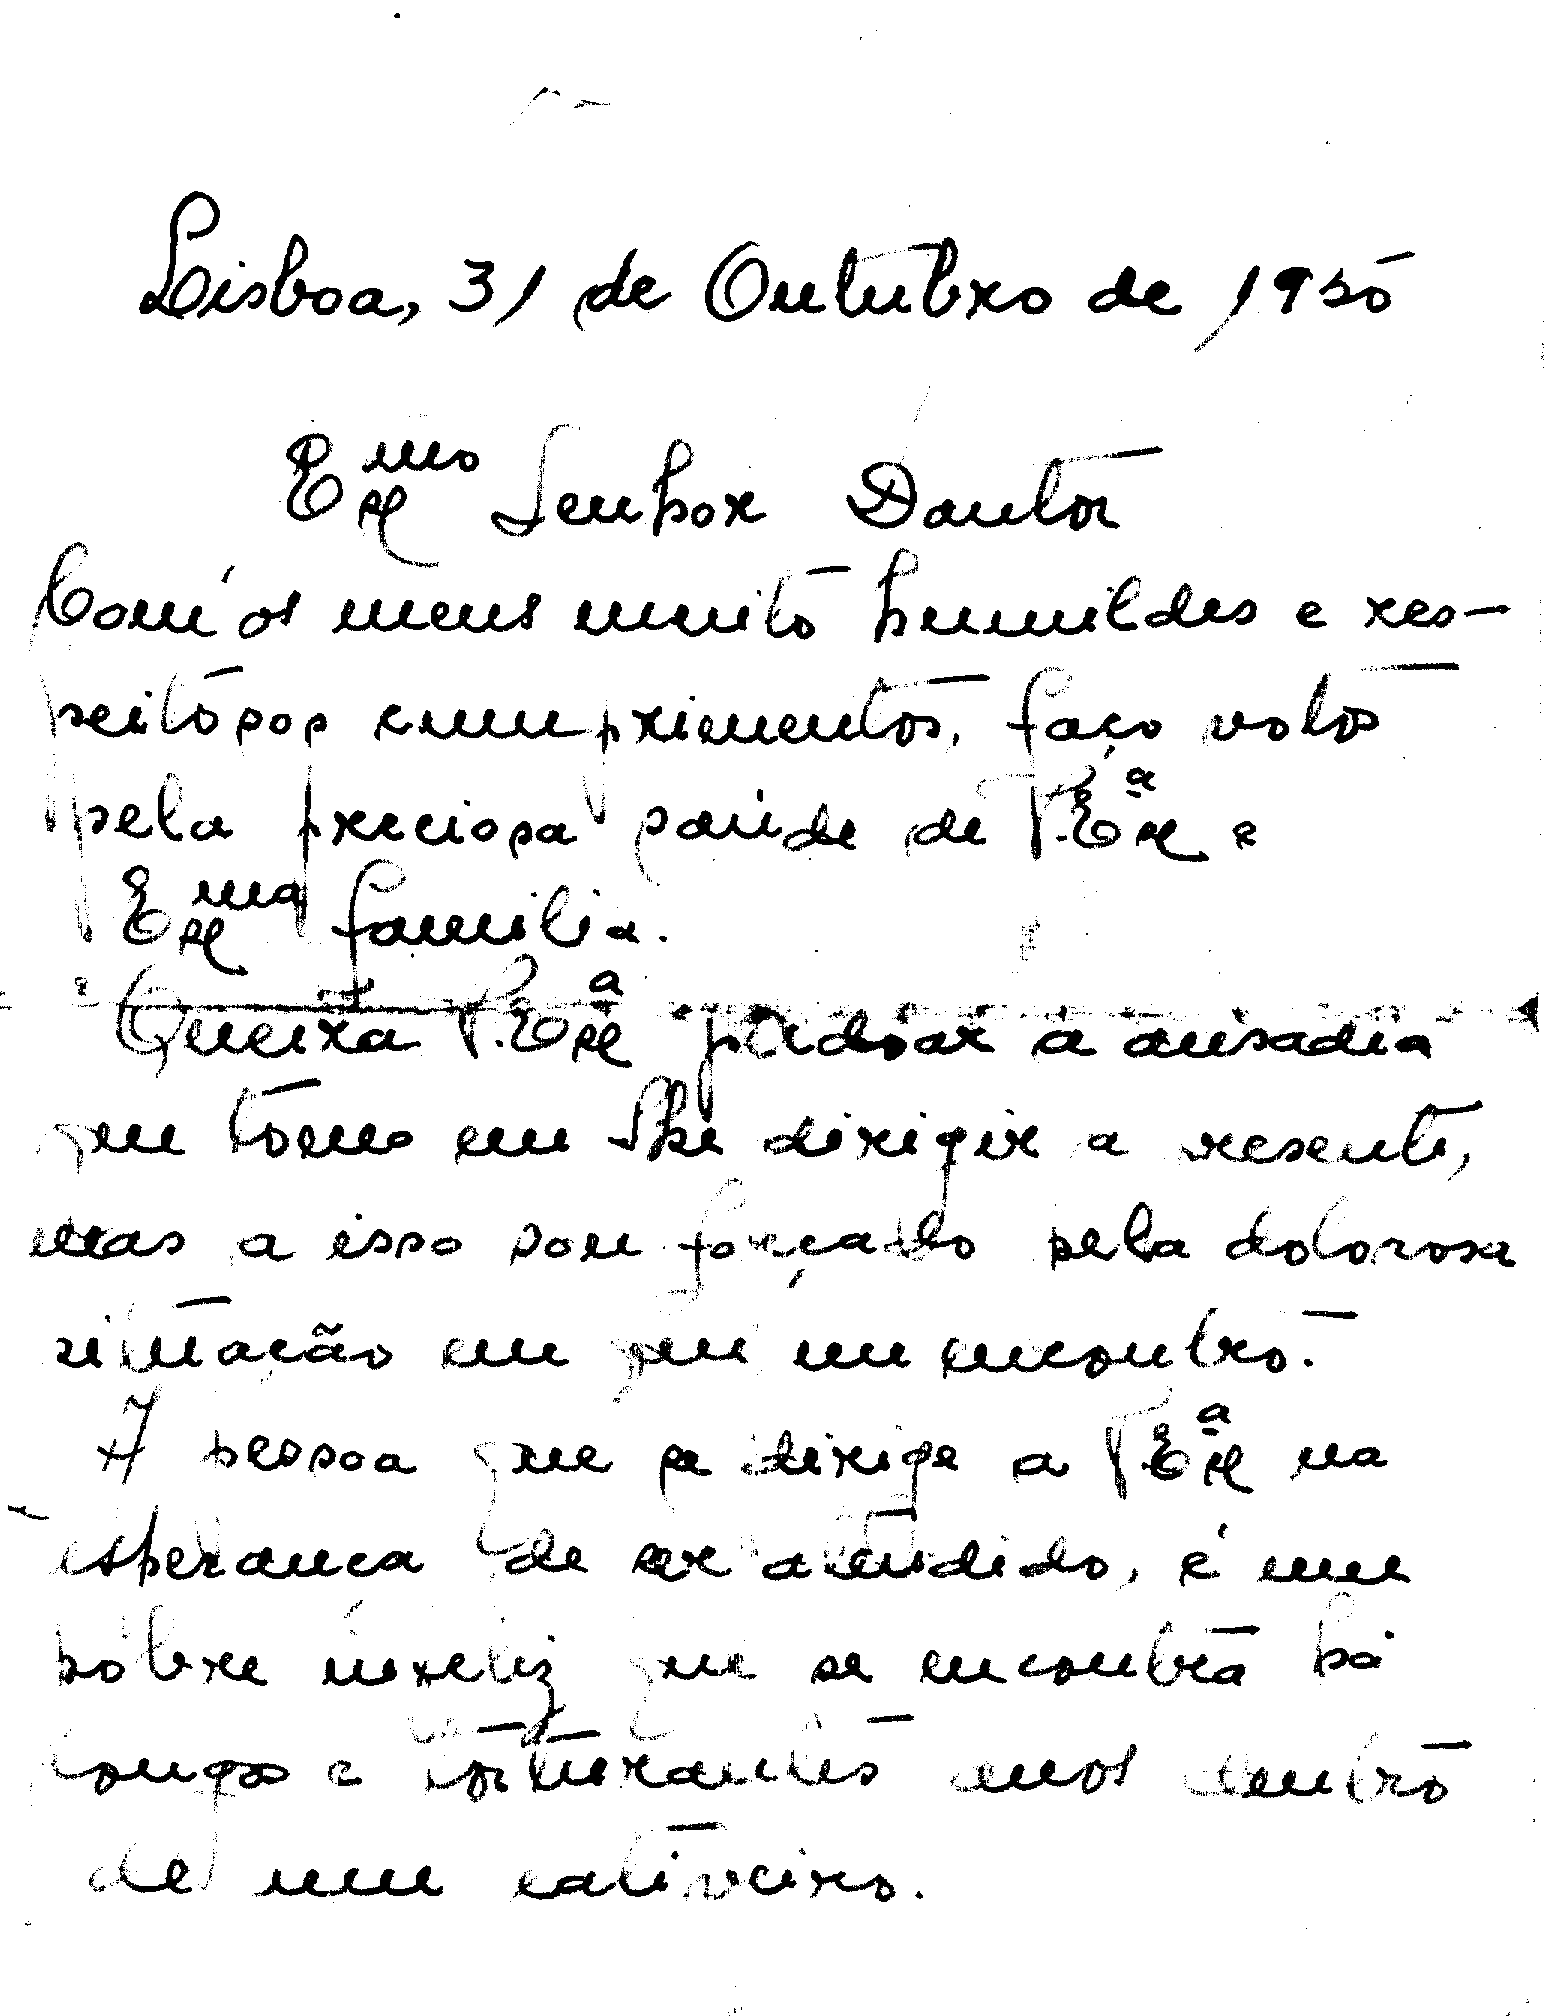 Lisboa, 31 de Outubro de 1955
Exmo Senhor Doutor
Com os meus muito humildes e res-
peitosos cumprimentos, faço votos
pela preciosa saúde de V. Exª e
Exma família.
Queira V. Exª perdoar a ousadia
que tomo em lhe dirigir a presente,
mas a isso sou forçado pela dolorosa
situação em que me encontro.
A pessoa que se dirige a V. Exª na
esperança de ser atendido, é um
pobre infeliz que se encontra há
longos e torturantes anos dentro
de um cativeiro.